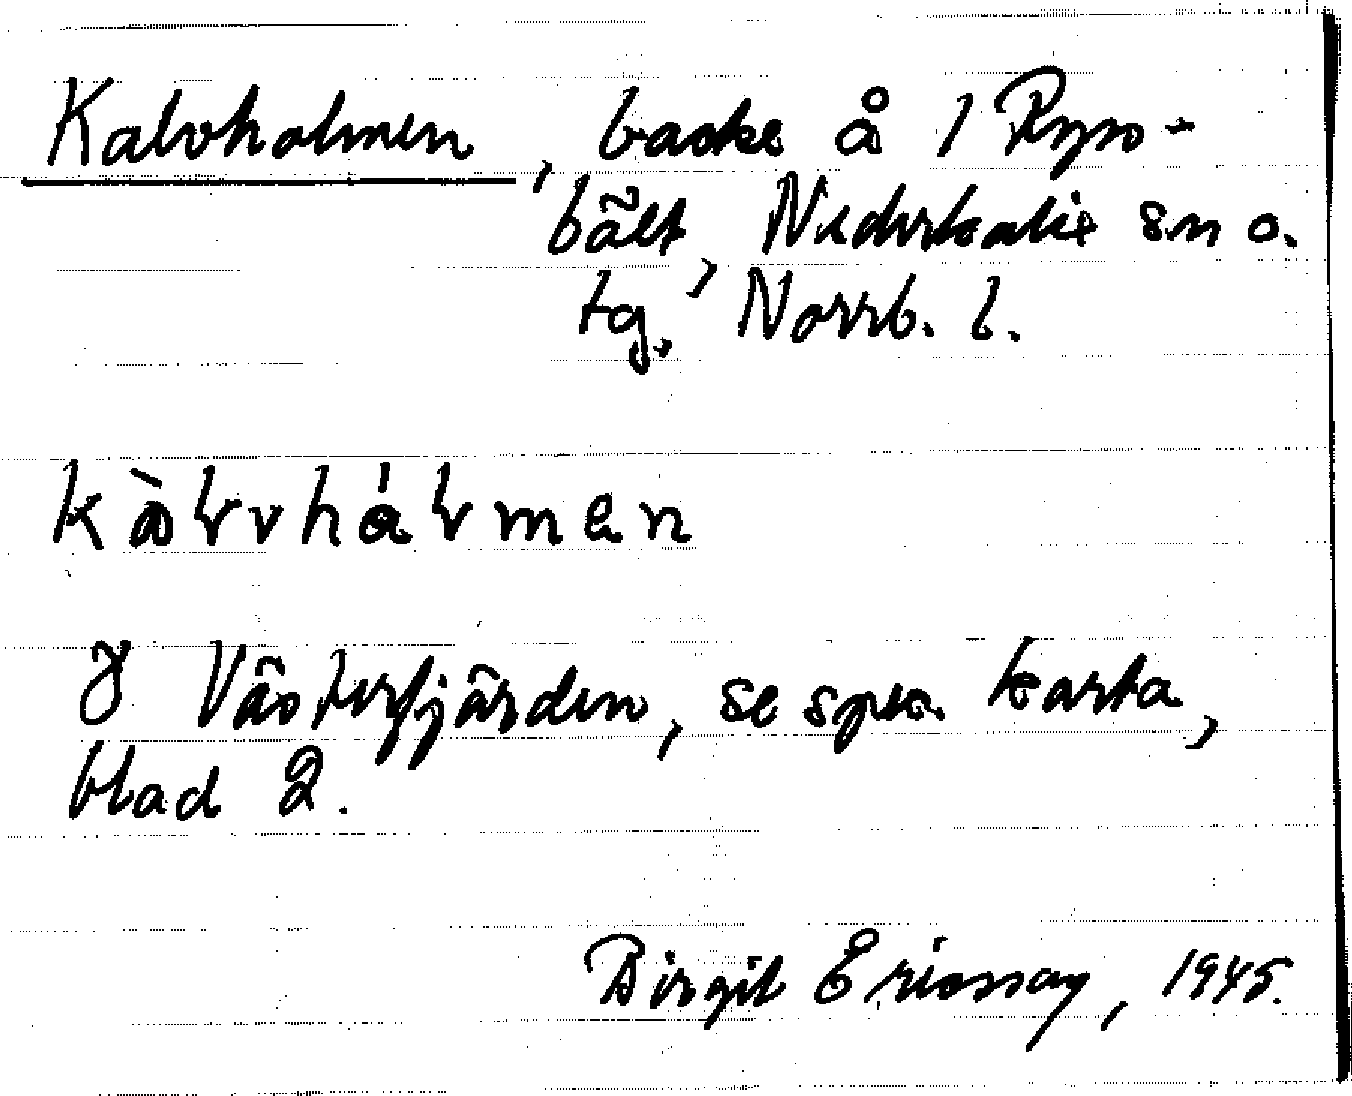 Kalvholmen, backe å 1 Ryss-
bält, Nederkalix sn o.
tg., Norrb. l.
kàɽvháɽmen
I Västerfjärden, se spec. karta,
blad 2.
Birgit Ericsson, 1945.